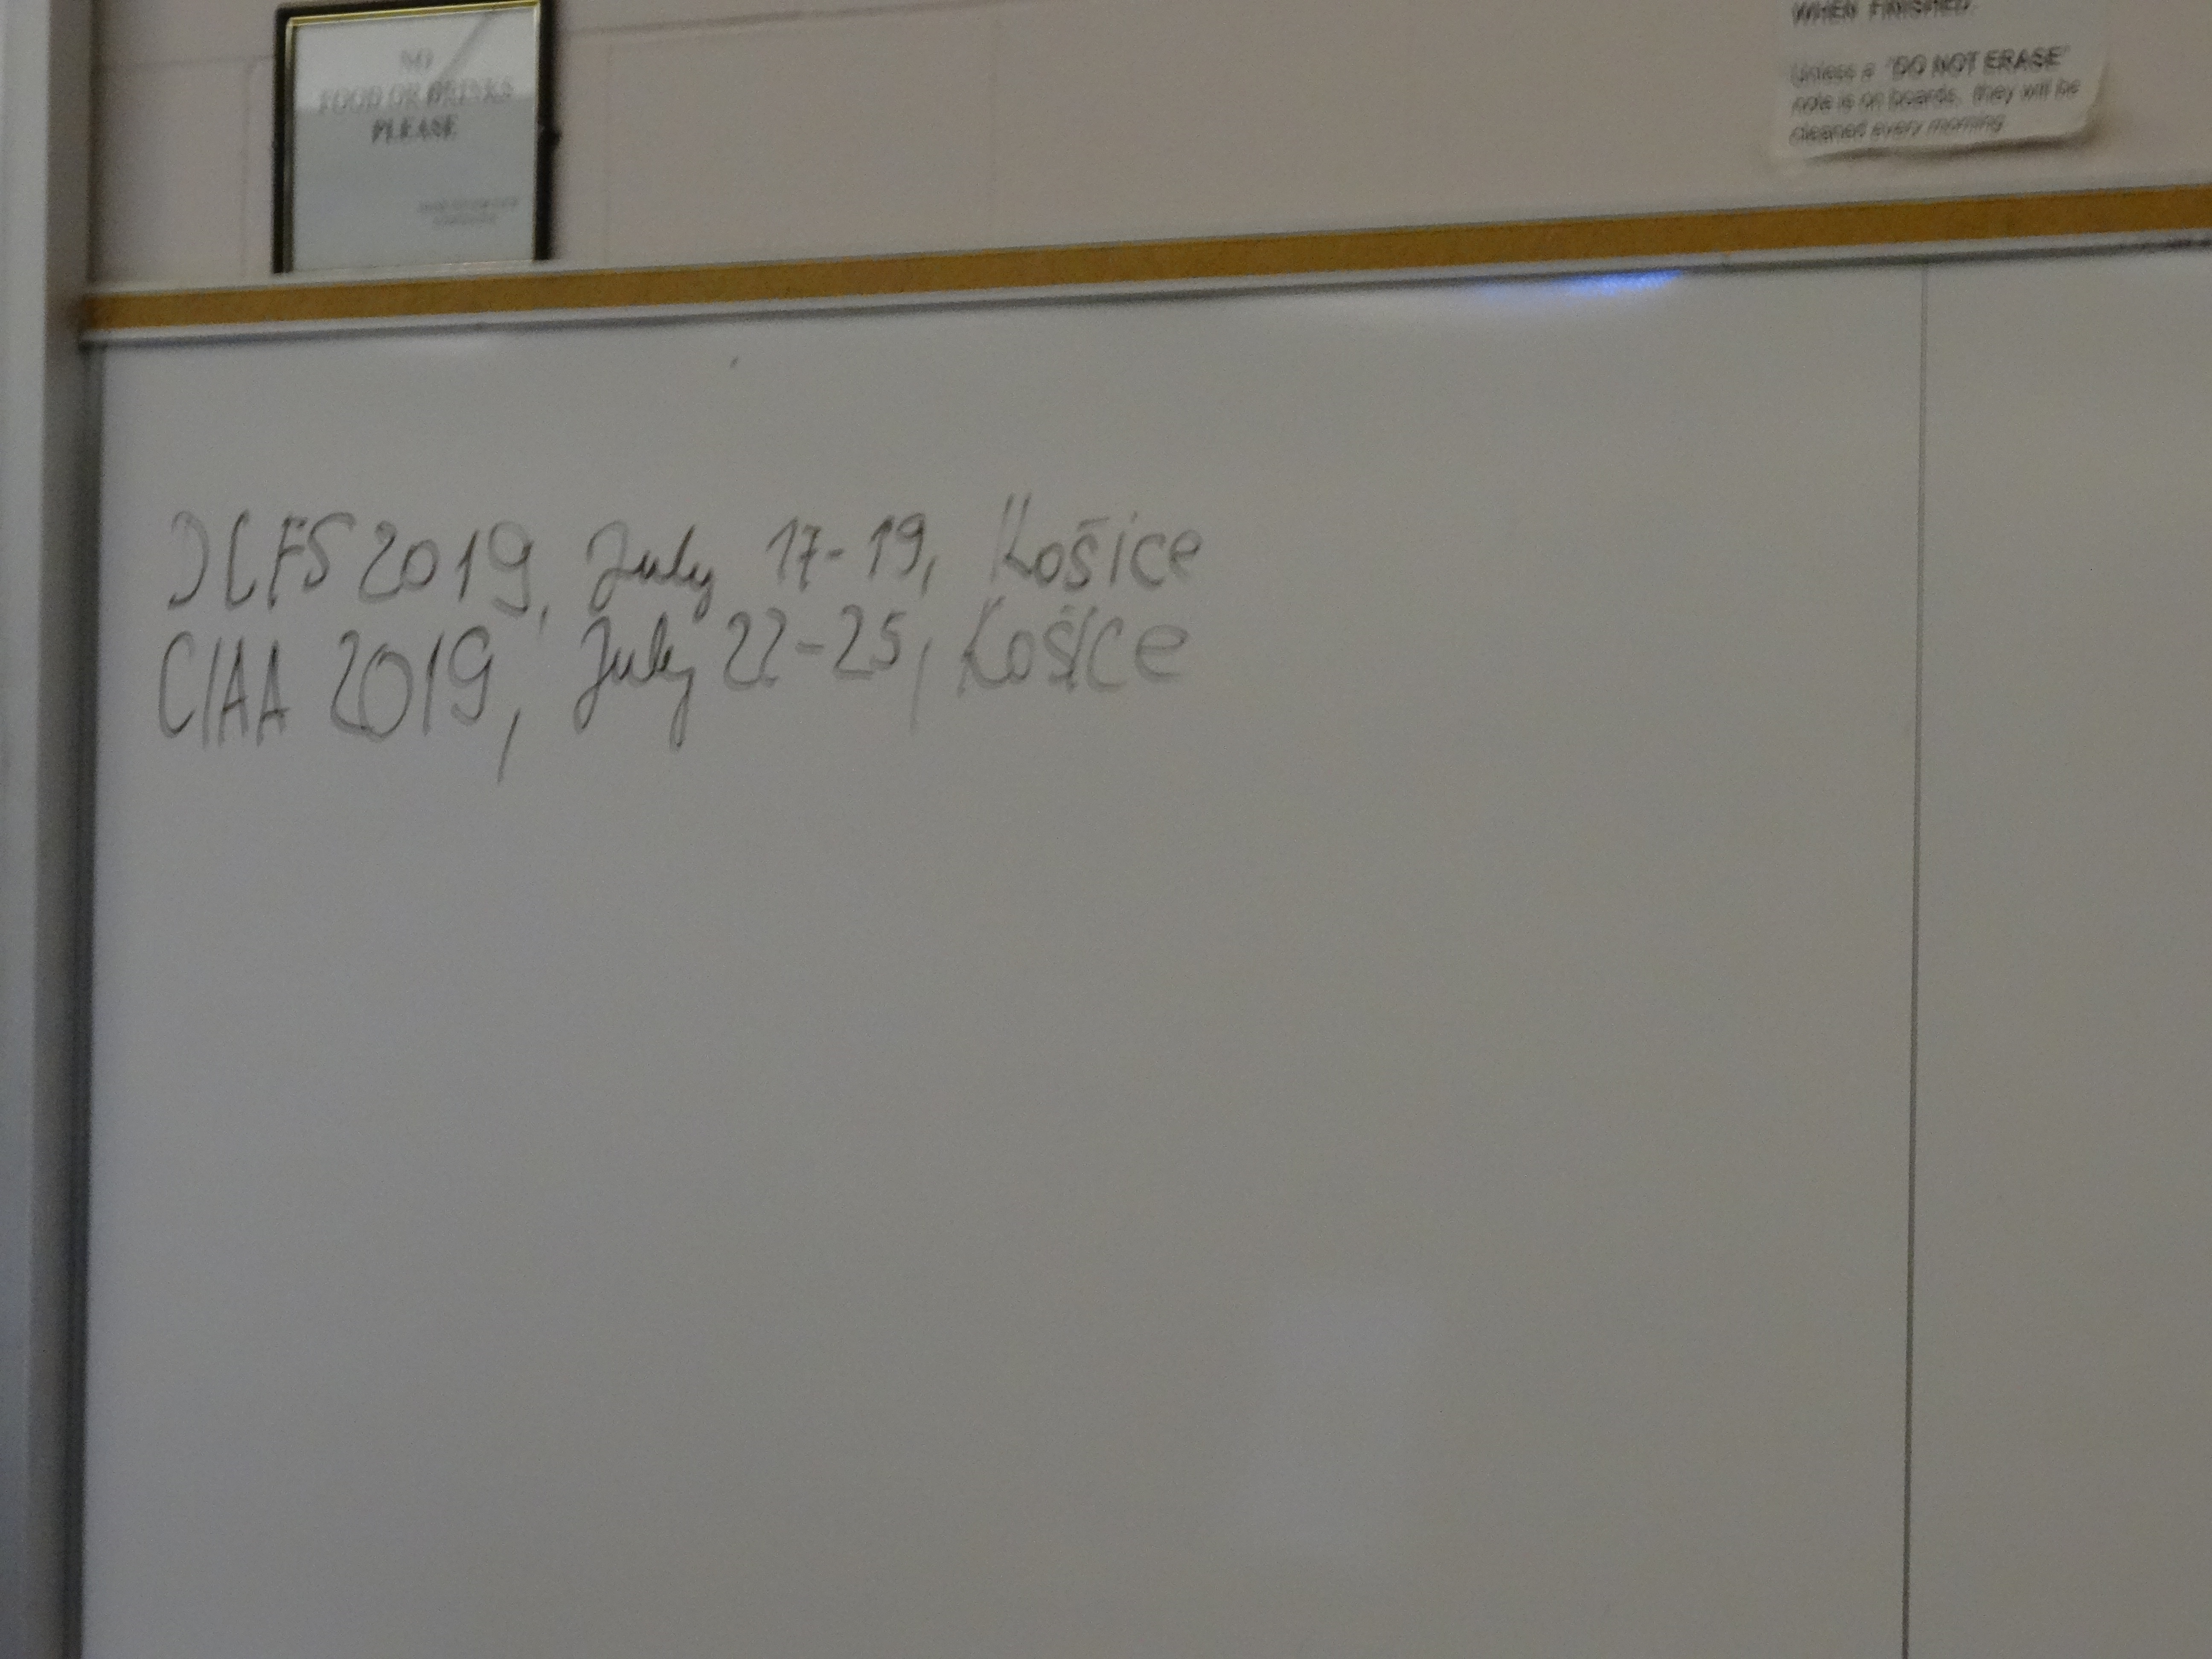 NO
FOOD OR DRINKS
PLEASE
WHEN FINISHED
Unless a "DO NOT ERASE"
note is on boards, they will be
cleaned every morning
DCFS 2019, July 17-19, Košice
CIAA 2019, July 22-25, Košice